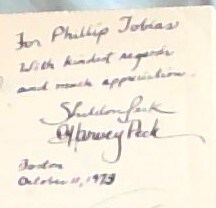 For Phillip Tobias
With kindest regards
and much appreciation.
Sheldon Peck
Harvey Peck
Boston
October 11, 1973